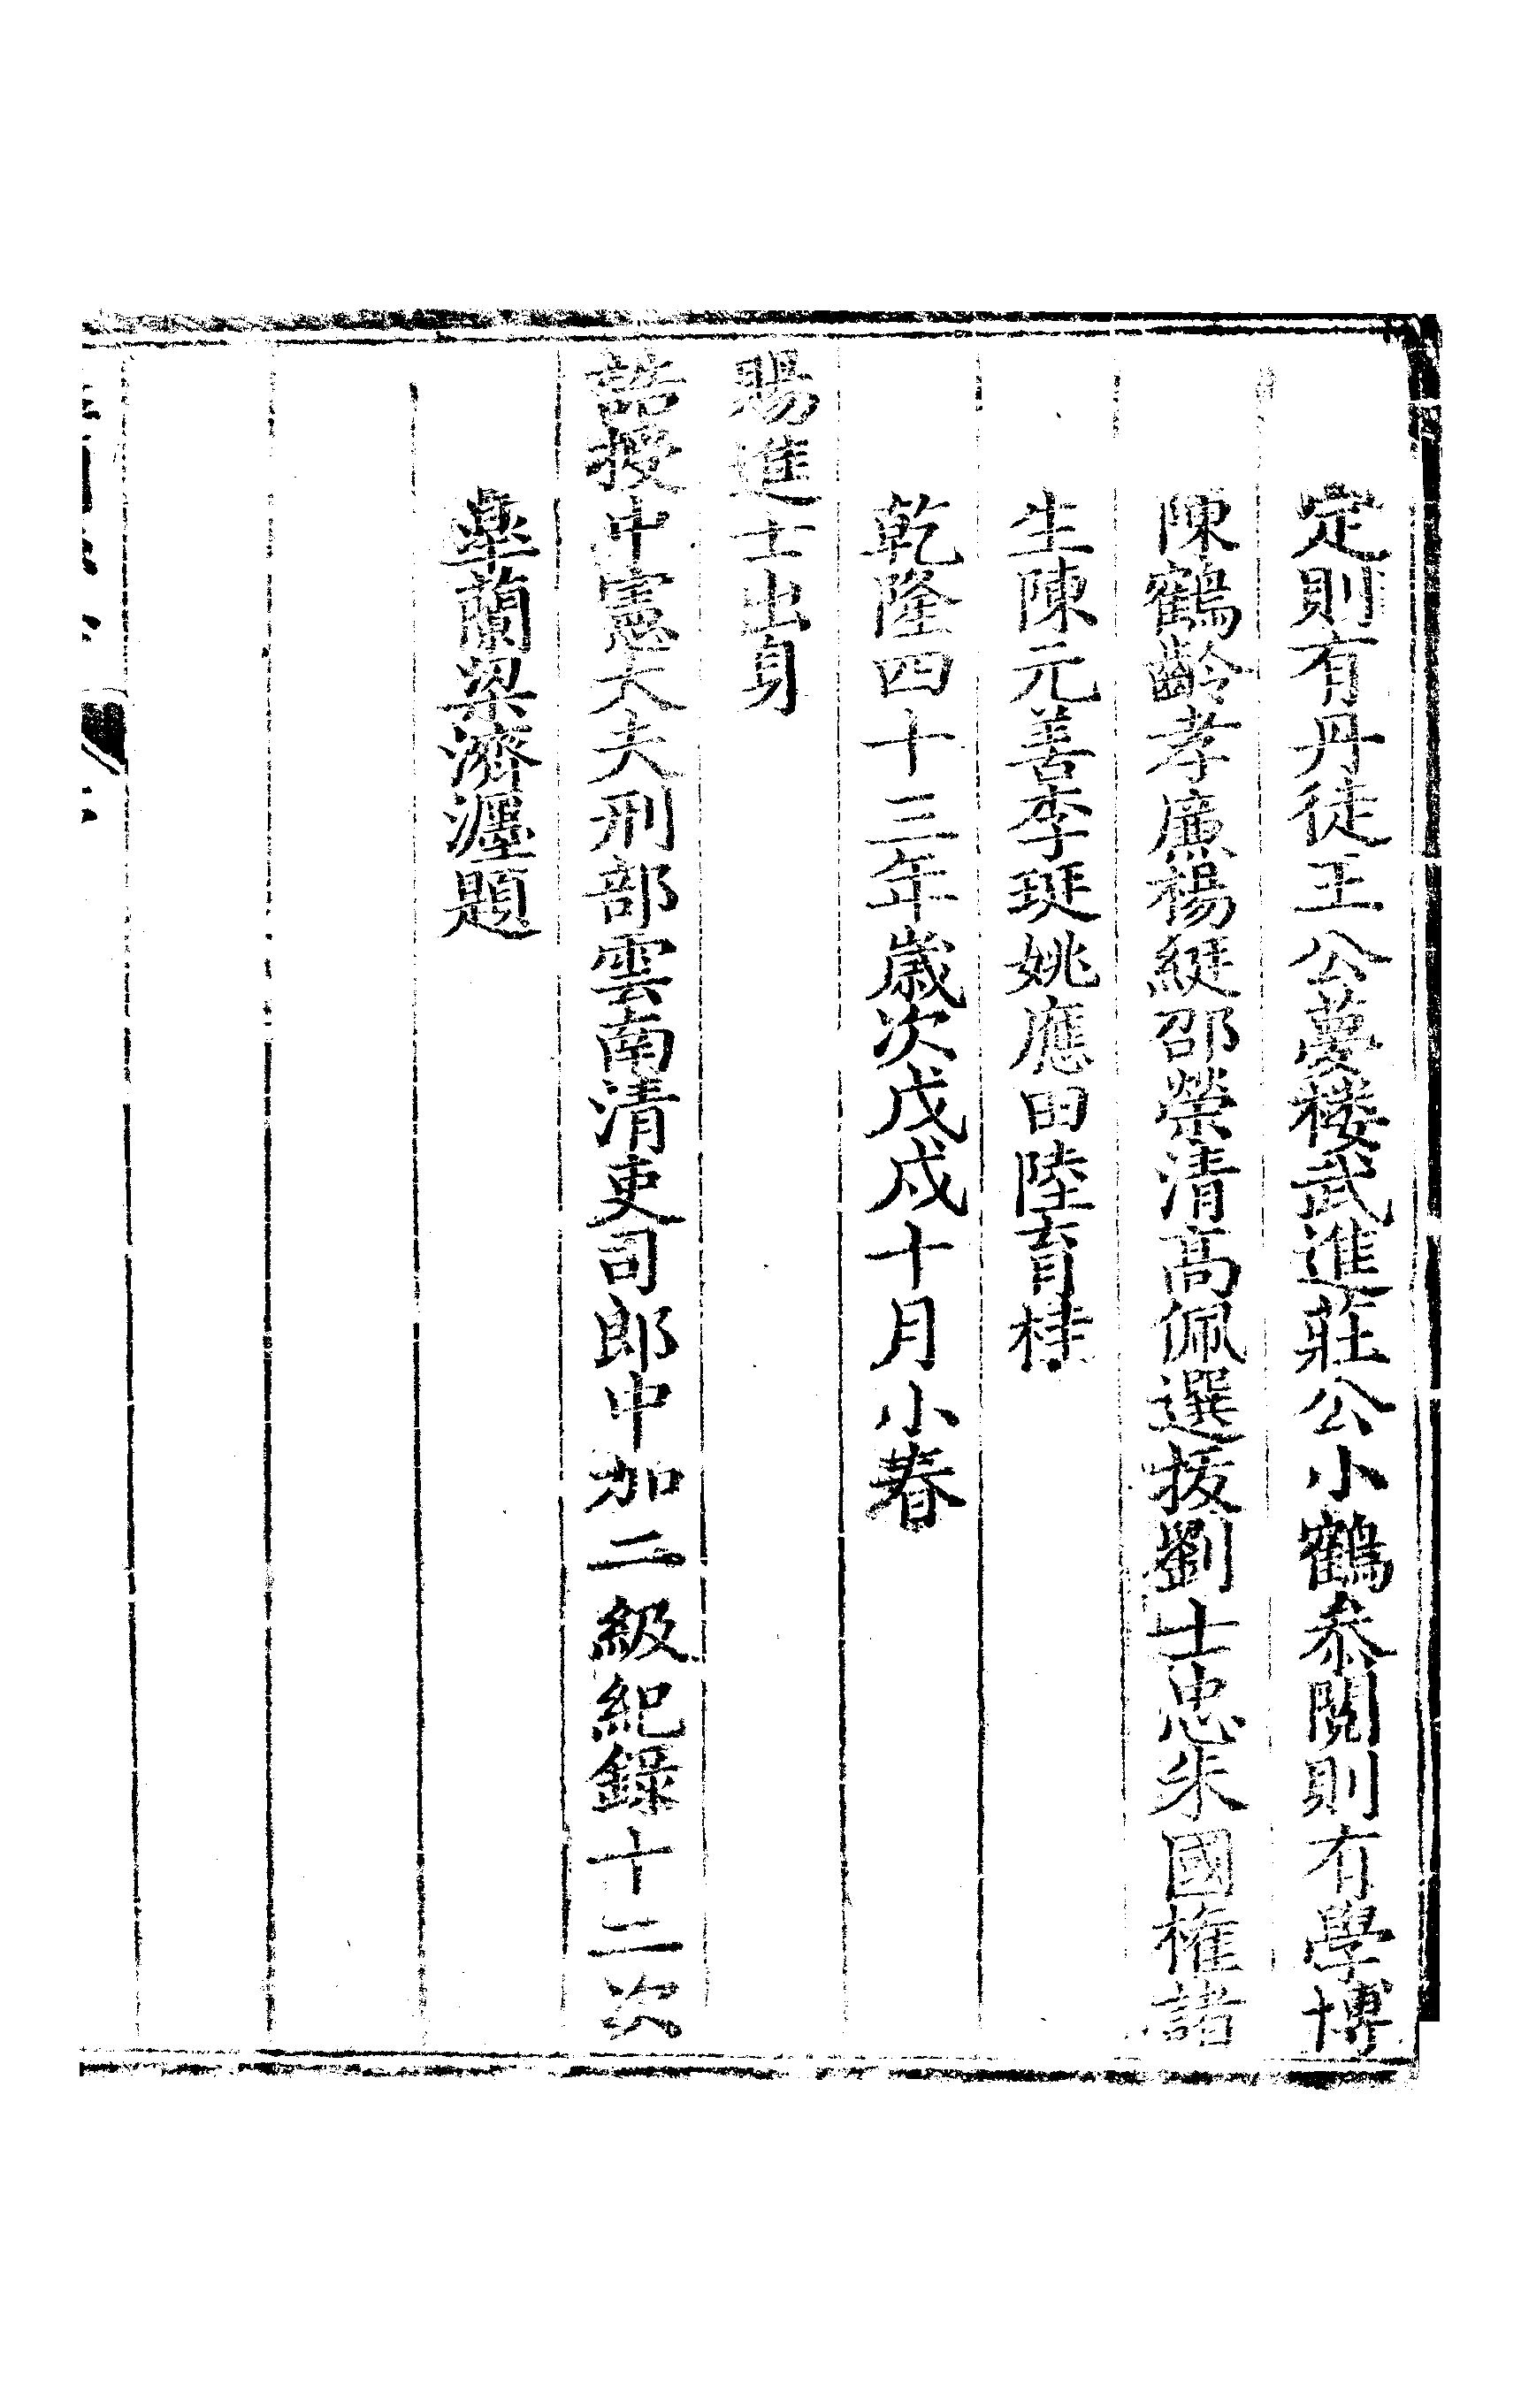 定則有丹徒王公夢楼武進莊公小鶴叅閱則有學博
陳鶴齡孝廉楊綎邵榮清高佩選拔劉士忠朱國權諸
生陳元善李珽姚應田陸育桂
乾隆四十三年歲次戊戌十月小春
賜進士出身
誥授中憲大夫刑部雲南清吏司郎中加二級紀錄十二次
臯蘭梁濟瀍題